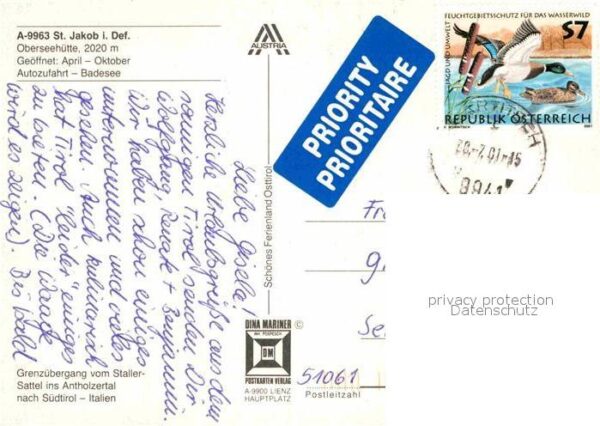 A-9963 St. Jakob i. Def.
Oberseehütte, 2020 m
Geöffnet: April – Oktober
Autozufahrt – Badesee
Liebe Gisela!
Herzliche Urlaubsgrüße aus dem
sonnigen Tirol senden Dir
Wolfgang, Renate + Benjamin.
Wir haben schon einiges
unternommen und vieles
gesehen. Auch kulinarisch
hat Tirol "leider" einiges
zu bieten. (Die Waage
wird es zeigen) Bis bald
Grenzübergang vom Staller-
Sattel ins Antholzertal
nach Südtirol – Italien
AUSTRIA
Schönes Ferienland Osttirol
DINA MARINER ©
DM
POSTKARTEN VERLAG
A-9900 LIENZ
HAUPTPLATZ
PRIORITY
PRIORITAIRE
FEUCHTGEBIETSCHUTZ FÜR DAS WASSERWILD
S7
JAGD UND UMWELT
REPUBLIK ÖSTERREICH
2001
Fr
g.
Se
51061
Postleitzahl
privacy protection
Datenschutz